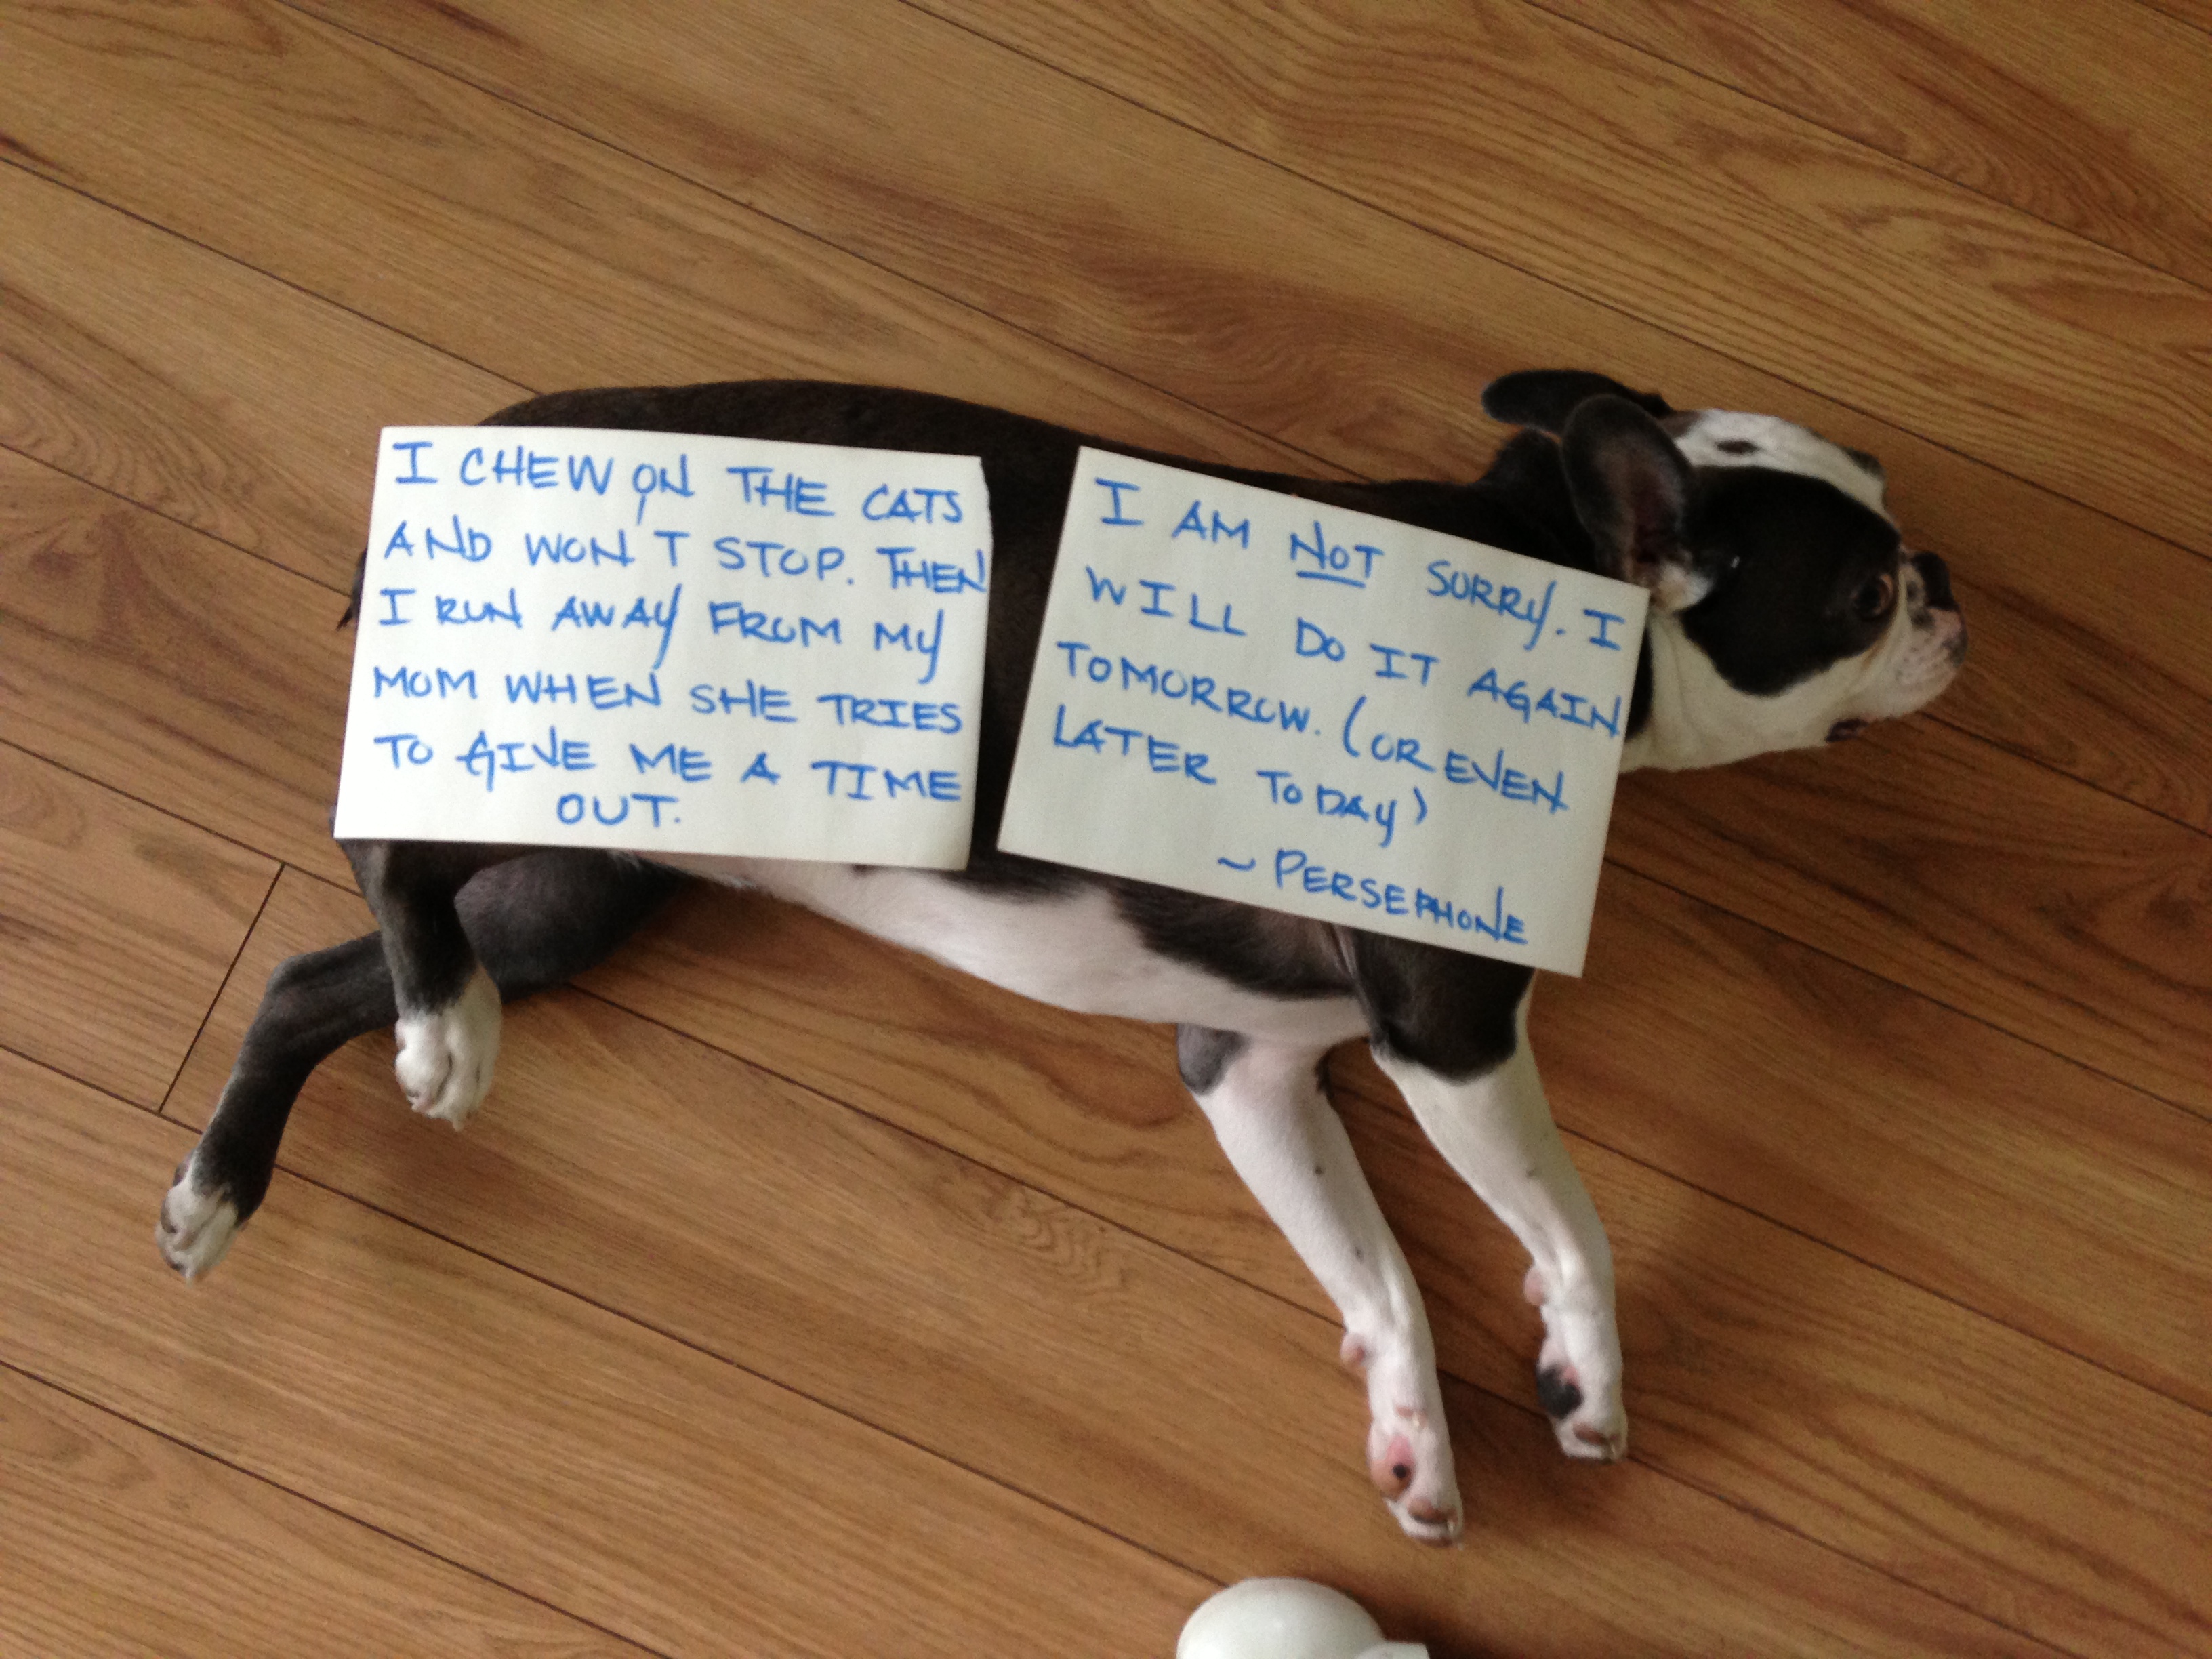 I CHEW ON THE CATS
AND WON'T STOP. THEN
I RUN AWAY FROM MY
MOM WHEN SHE TRIES
TO GIVE ME A TIME
OUT.
I AM NOT SORRY. I
WILL DO IT AGAIN
TOMORROW. (OR EVEN
LATER TODAY)
~ PERSEPHONE